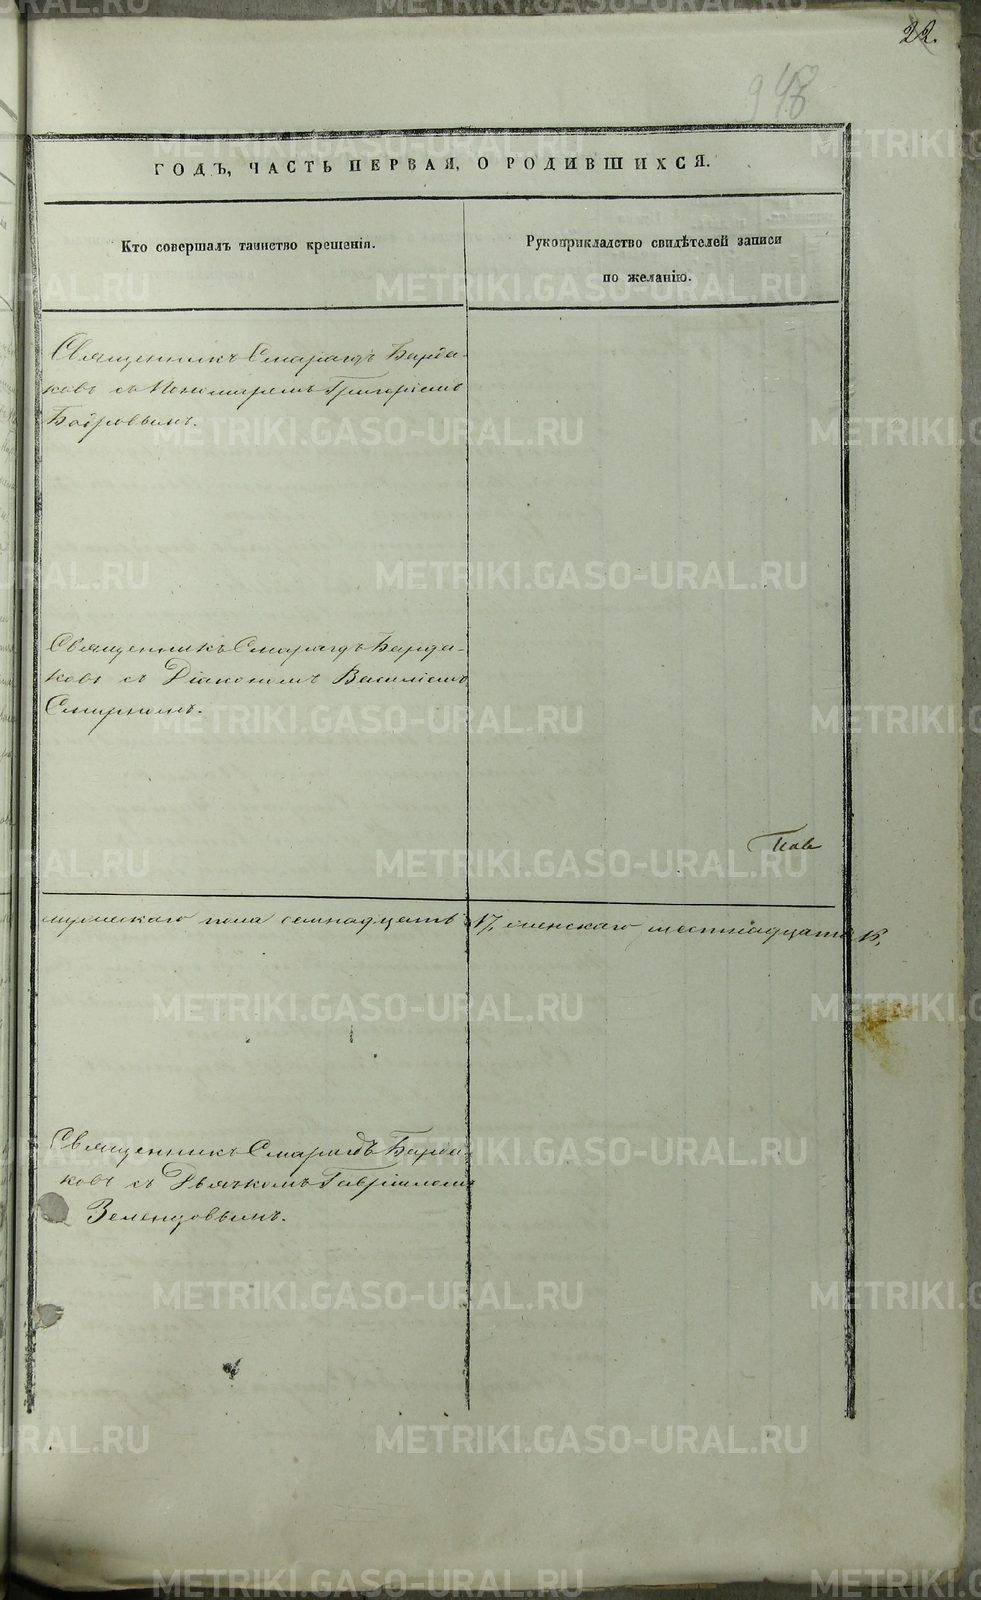 22.
948
ГОДЪ, ЧАСТЬ ПЕРВАЯ, О РОДИВШИХСЯ.
Кто совершалъ таинство крещенія.
Рукоприкладство свидѣтелей записи
по желанію.
Священникъ Смарагдъ Барда-
ковъ съ Пономаремъ Григоріемъ
Священникъ Смарагдъ Барда-
ковъ съ Діакономъ Василіемъ
Смирновымъ.
мужескаго пола семнадцать 17, женскаго шестнадцать 16,
Священникъ Смарагдъ Барда-
ковъ съ Дьячкомъ Гавріиломъ
Зеленцовымъ.
METRIKI.GASO-URAL.RU